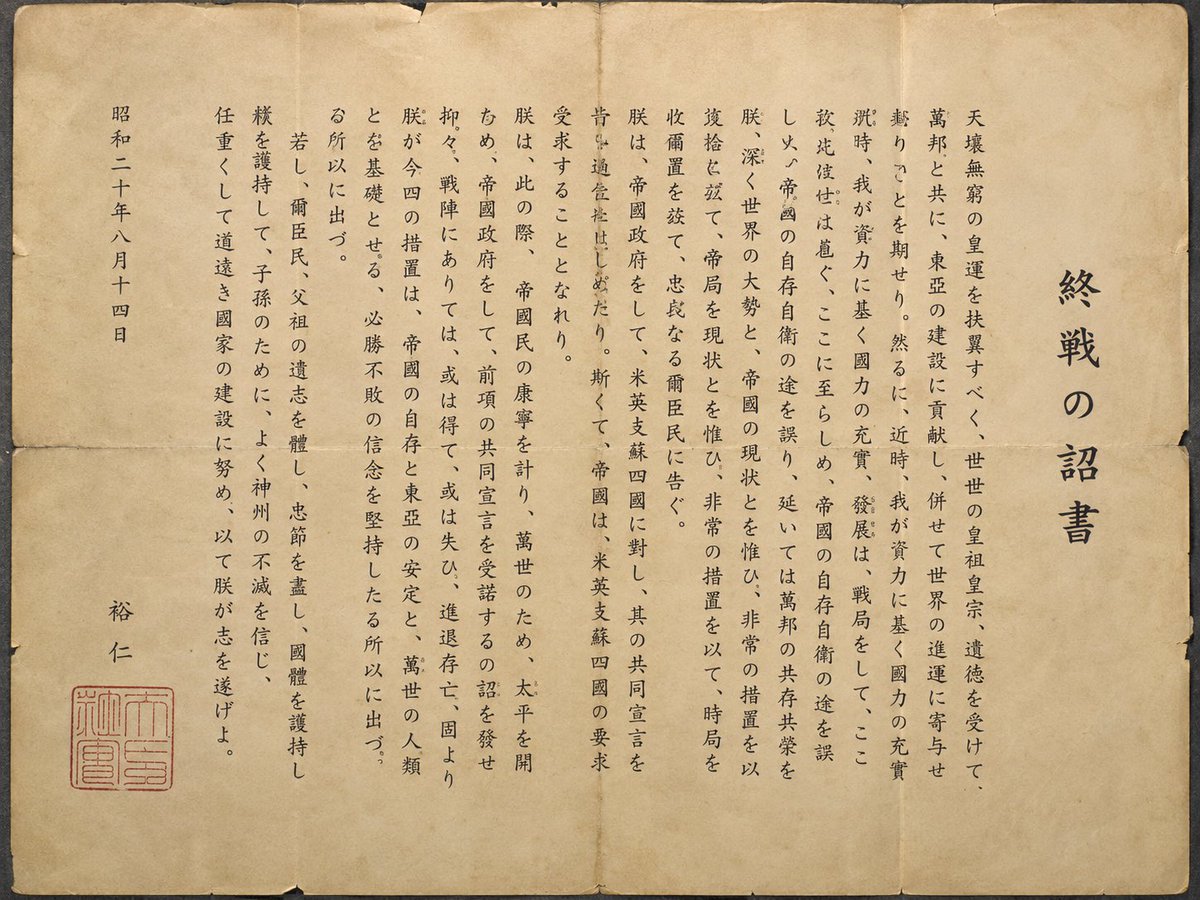 終戦の詔書
天壤無窮の皇運を扶翼すべく、世世の皇祖皇宗、遺徳を受けて、
萬邦と共に、東亞の建設に貢献し、併せて世界の進運に寄与せ
りことを期せり。然るに、近時、我が資力に基く國力の充實
時、我が資力に基く國力の充實、發展は、戦局をして、ここ
は ぐ、ここに至らしめ、帝國の自存自衛の途を誤
し 帝國の自存自衛の途を誤り、延いては萬邦の共存共榮を
朕、深く世界の大勢と、帝國の現状とを惟ひ、非常の措置を以
拾 て、帝局を現状とを惟ひ、非常の措置を以て、時局を
收 置を て、忠良なる爾臣民に告ぐ。
朕は、帝國政府をして、米英支蘇四國に對し、其の共同宣言を
通告 はしめたり。斯くて、帝國は、米英支蘇四國の要求
受求することとなれり。
朕は、此の際、帝國民の康寧を計り、萬世のため、太平を開
ため、帝國政府をして、前項の共同宣言を受諾するの詔を發せ
抑々、戦陣にありては、或は得て、或は失ひ、進退存亡、固より
朕が今四の措置は、帝國の自存と東亞の安定と、萬世の人類
とを基礎とせる、必勝不敗の信念を堅持したる所以に出づ。
る所以に出づ。
若し、爾臣民、父祖の遺志を體し、忠節を盡し、國體を護持し
を護持して、子孫のために、よく神州の不滅を信じ、
任重くして道遠き國家の建設に努め、以て朕が志を遂げよ。
昭和二十年八月十四日
裕仁